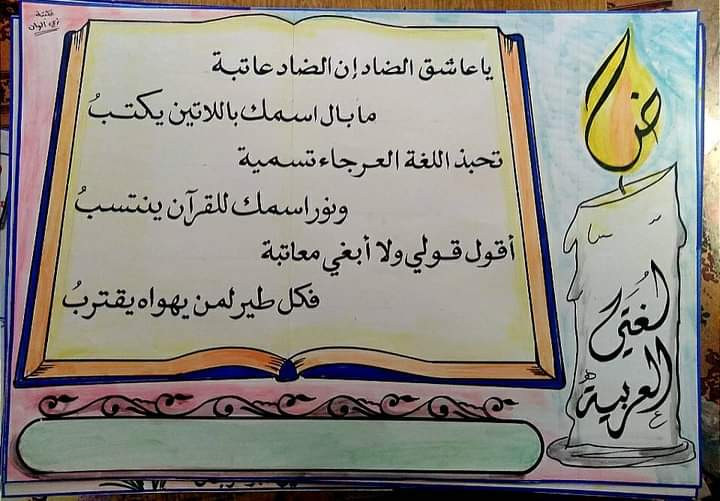 يا عاشق الضاد إن الضاد عاتبة
ما بال اسمك باللاتين يكتبُ
تحبذ اللغة العرجاء تسمية
ونور اسمك للقرآن ينتسبُ
أقول قولي ولا أبغي معاتبة
فكل طير لمن يهواه يقتربُ
ض
لغتي
العربية